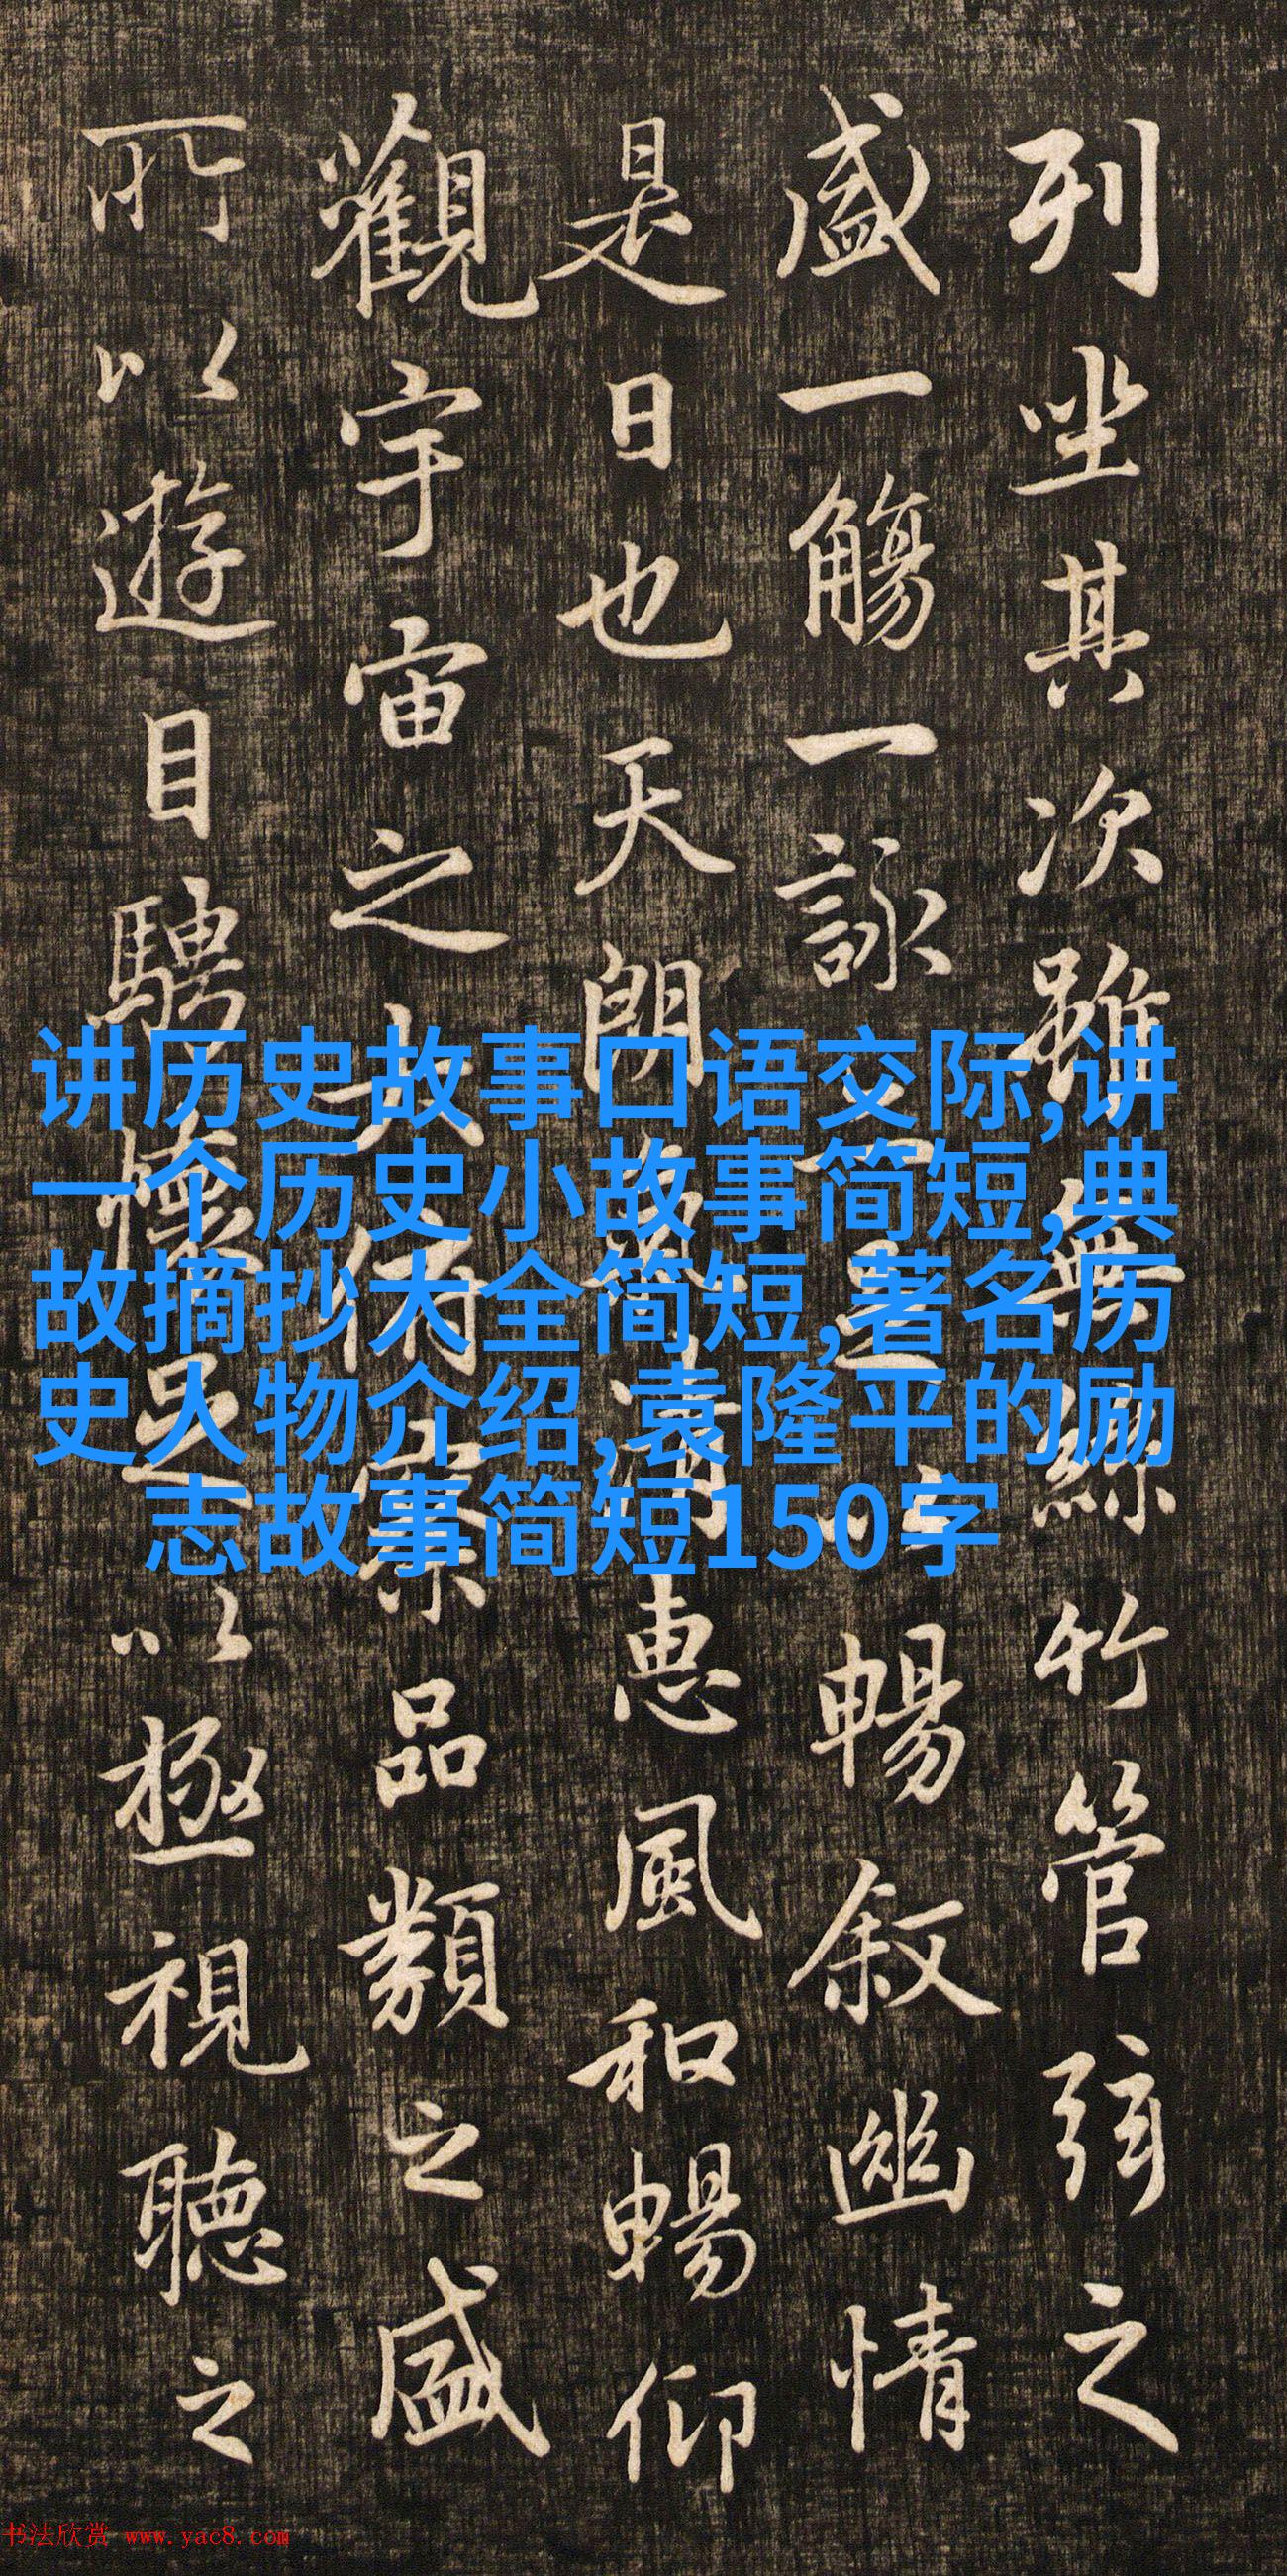 列坐其次雖無絲竹管弦之
盛一觴一詠亦足以暢叙幽情
是日也天朗氣清惠風和暢仰
觀宇宙之大俯察品類之盛
所以遊目騁懷足以極視聽之
讲历史故事口语交际,讲
一个历史小故事简短,典
故摘抄大全简短,著名历
史人物介绍,袁隆平的励
志故事简短150字
书法欣赏 www.yac8.com